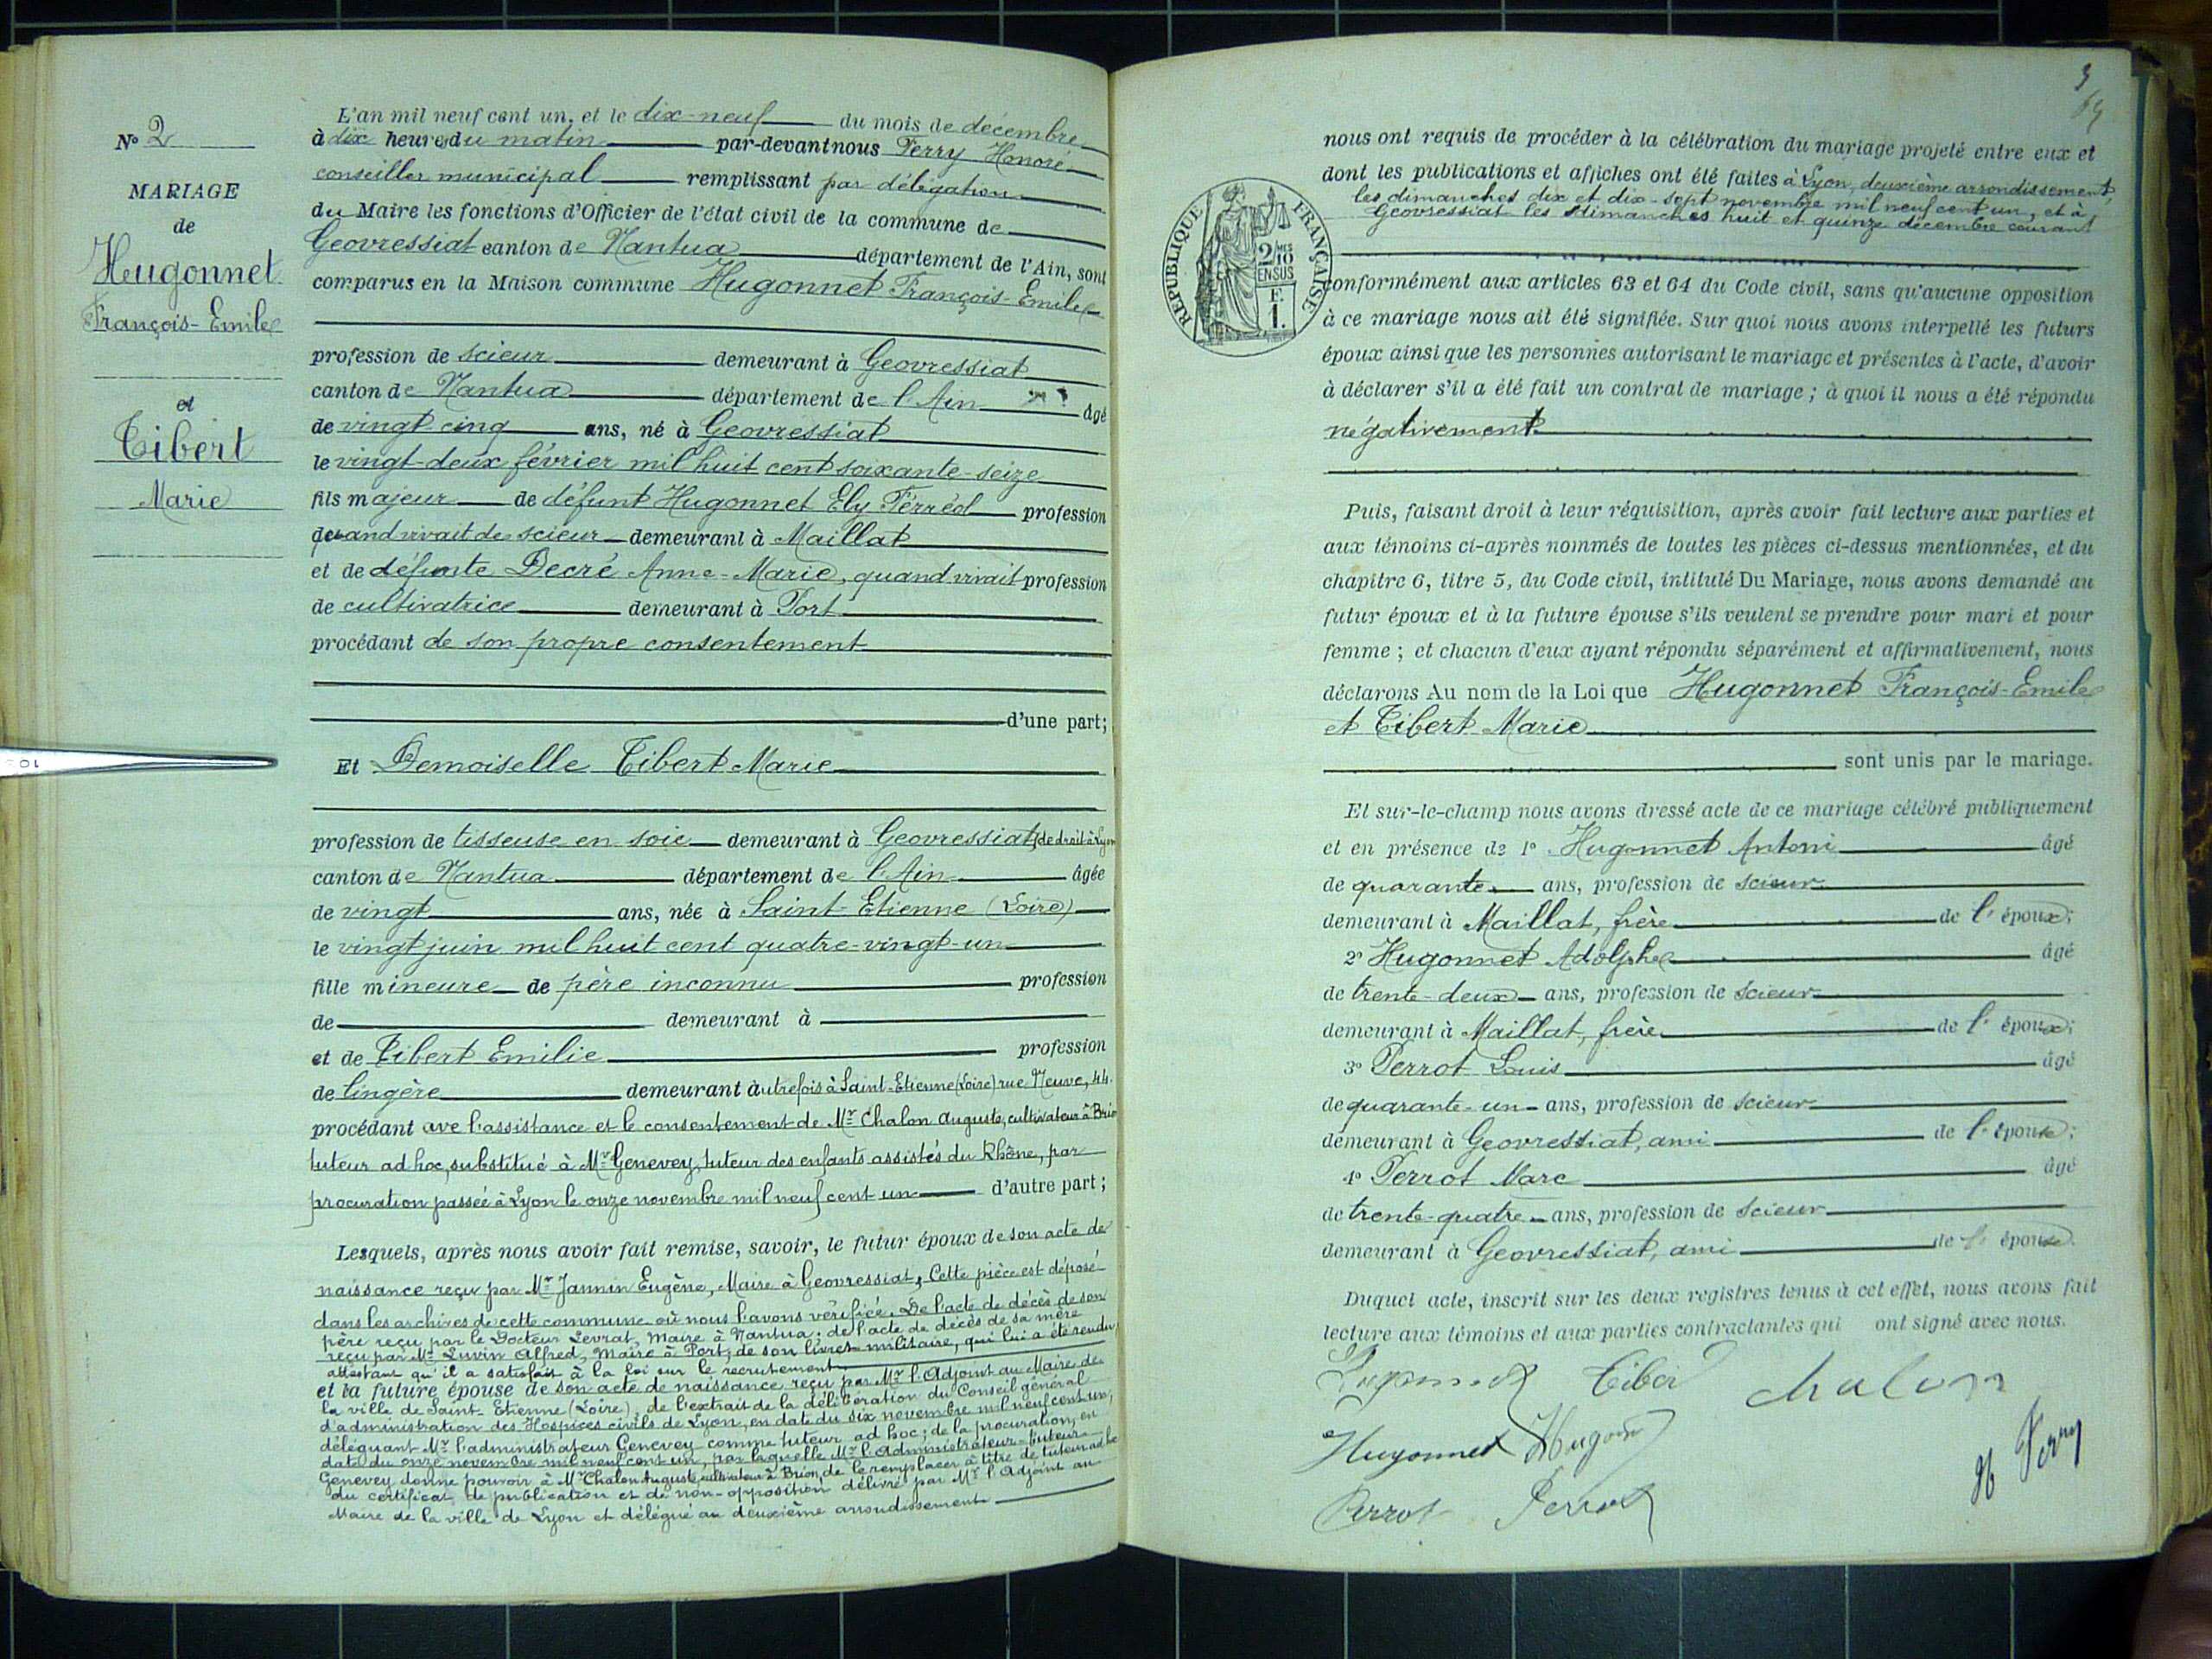 N° 2
MARIAGE
de
Hugonnet
François-Emile
et
Tibert
Marie
L'an mil neuf cent un, et le dix-neuf du mois de décembre
à dix heures du matin par-devant nous Ferry Honoré
conseiller municipal remplissant par délégation
du Maire les fonctions d'Officier de l'état civil de la commune de
Geovressiat canton de Nantua département de l'Ain, sont
comparus en la Maison commune Hugonnet François-Emile
profession de scieur demeurant à Geovressiat
canton de Nantua département de l'Ain âgé
de vingt cinq ans, né à Geovressiat
le vingt-deux février mil huit cent soixante-seize
fils majeur de défunt Hugonnet Ely Ferréol profession
quand vivait de scieur demeurant à Maillat
et de défunte Decré Anne-Marie, quand vivait profession
de cultivatrice demeurant à Port
procédant de son propre consentement
d'une part;
Et Demoiselle Tibert Marie
profession de tisseuse en soie demeurant à Geovressiat, de droit à Lyon
canton de Nantua département de l'Ain âgée
de vingt ans, née à Saint-Etienne (Loire)
le vingt juin mil huit cent quatre-vingt-un
fille mineure de père inconnu profession
de demeurant à
et de Tibert Emilie profession
de lingère demeurant autrefois à Saint-Etienne (Loire) rue Neuve, 44.
procédant ave l'assistance et le consentement de Mr Chalon Auguste, cultivateur à Brion
tuteur ad hoc, substitué à Mr Genevey, tuteur des enfants assistés du Rhône, par
procuration passée à Lyon le onze novembre mil neuf cent un d'autre part;
Lesquels, après nous avoir fait remise, savoir, le futur époux de son acte de
naissance reçu par Mr Jannin Eugène, Maire à Geovressiat, Cette pièce est déposé
dans les archives de cette commune où nous l'avons vérifiée. De l'acte de décès de son
père reçu par le Docteur Levrat, Maire à Nantua; de l'acte de décès de sa mère
reçu par Mr Luvin Alfred, Maire à Port; de son livret militaire, qui lui a été rendu,
attestant qu'il a satisfait à la loi sur le recrutement
et la future épouse de son acte de naissance reçu par Mr l'Adjoint au Maire de
la ville de Saint-Etienne (Loire), de l'extrait de la délibération du Conseil général
d'administration des Hospices civils de Lyon, en date du six novembre mil neuf cent un,
déléguant Mr l'administrateur Genevey comme tuteur ad hoc; de la procuration, en
date du onze novembre mil neuf cent un, par laquelle Mr l'Administrateur-tuteur
Genevey donne pouvoir à Mr Chalon Auguste, cultivateur à Brion, de le remplacer à titre de tuteur ad hoc
du certificat de publication et de non-opposition délivré par Mr l'Adjoint au
Maire de la ville de Lyon et délégué au deuxième arrondissement
3
RÉPUBLIQUE FRANÇAISE
2/10
EN SUS
F.
1.
nous ont requis de procéder à la célébration du mariage projeté entre eux et
dont les publications et affiches ont été faites à Lyon, deuxième arrondissement,
les dimanches dix et dix-sept novembre mil neuf cent un, et à
Geovressiat les dimanches huit et quinze décembre courant
conformément aux articles 63 et 64 du Code civil, sans qu'aucune opposition
à ce mariage nous ait été signifiée. Sur quoi nous avons interpellé les futurs
époux ainsi que les personnes autorisant le mariage et présentes à l'acte, d'avoir
à déclarer s'il a été fait un contrat de mariage; à quoi il nous a été répondu
négativement
Puis, faisant droit à leur réquisition, après avoir fait lecture aux parties et
aux témoins ci-après nommés de toutes les pièces ci-dessus mentionnées, et du
chapitre 6, titre 5, du Code civil, intitulé Du Mariage, nous avons demandé au
futur époux et à la future épouse s'ils veulent se prendre pour mari et pour
femme; et chacun d'eux ayant répondu séparément et affirmativement, nous
déclarons Au nom de la Loi que Hugonnet François-Emile
et Tibert Marie
sont unis par le mariage.
Et sur-le-champ nous avons dressé acte de ce mariage célébré publiquement
et en présence de 1° Hugonnet Antoni âgé
de quarante ans, profession de scieur
demeurant à Maillat, frère de l'époux;
2° Hugonnet Adolphe âgé
de trente-deux ans, profession de scieur
demeurant à Maillat, frère de l'époux;
3° Perrot Louis âgé
de quarante-un ans, profession de scieur
demeurant à Geovressiat, ami de l'épouse;
4° Perrot Marc âgé
de trente-quatre ans, profession de scieur
demeurant à Geovressiat, ami de l'épouse.
Duquel acte, inscrit sur les deux registres tenus à cet effet, nous avons fait
lecture aux témoins et aux parties contractantes qui ont signé avec nous.
Tiber Chalon
Hugonnet
Perrot Perrot
H Ferry